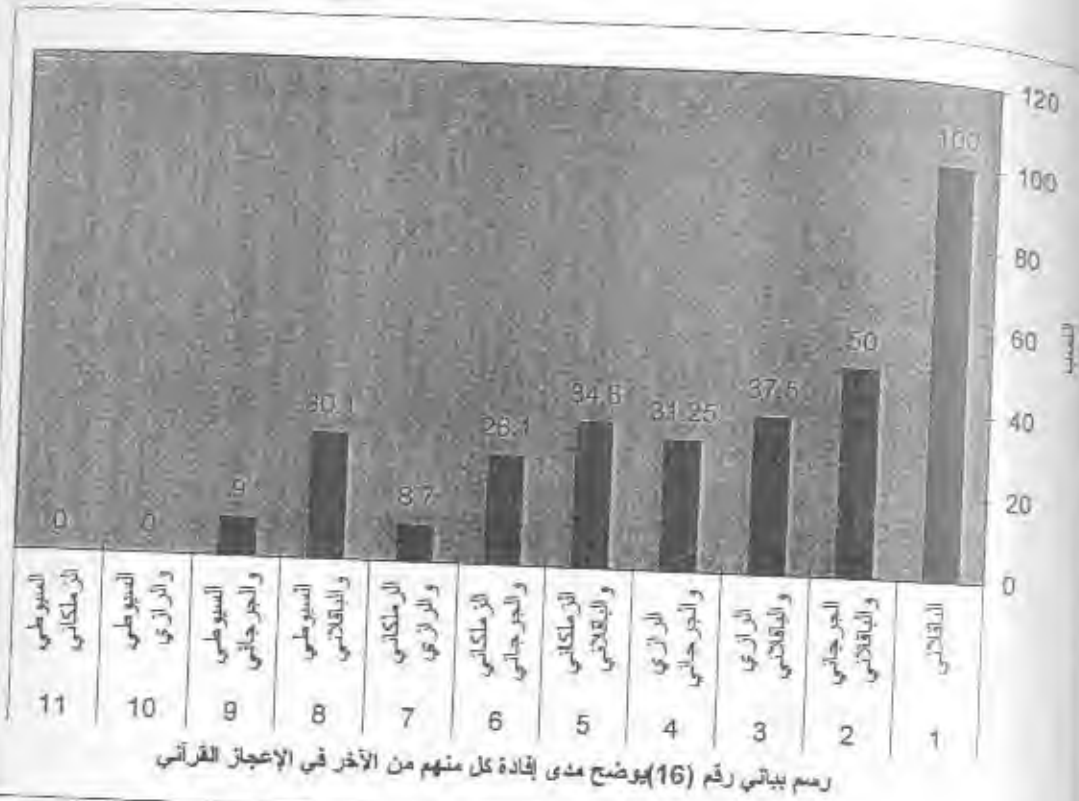 120
100
80
60
40
20
0
100
50
37.5
31.25
34.8
26.1
8.7
30.1
9
0
0
الباقلاني
الجرجاني
والباقلاني
الرازي
والباقلاني
الرازي
والجرجاني
الزملكاني
والباقلاني
الزملكاني
والجرجاني
الزملكاني
والرازي
السيوطي
والباقلاني
السيوطي
والجرجاني
السيوطي
والرازي
السيوطي
الزملكاني
1
2
3
4
5
6
7
8
9
10
11
رسم بياني رقم (16)يوضح مدى إفادة كل منهم من الآخر في الإعجاز القرآني